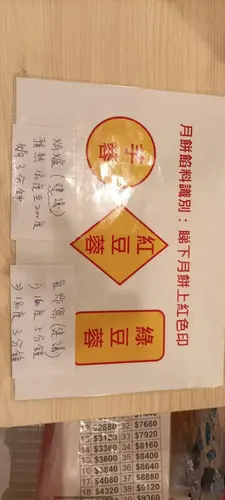 月餅餡料識別：睇下月餅上紅色印
芋蓉
紅豆蓉
綠豆蓉
焗爐(建議)
焗3分鐘
(建議)
1) 160度 5分鐘
2) 180度 3分鐘
$2880 32 $7680
33 $7920
14 $3360 34 $8160
15 $3600 35 $8400
16 $3840 36 $8640
17 $4080
18 $4320 38 $9120
$9360